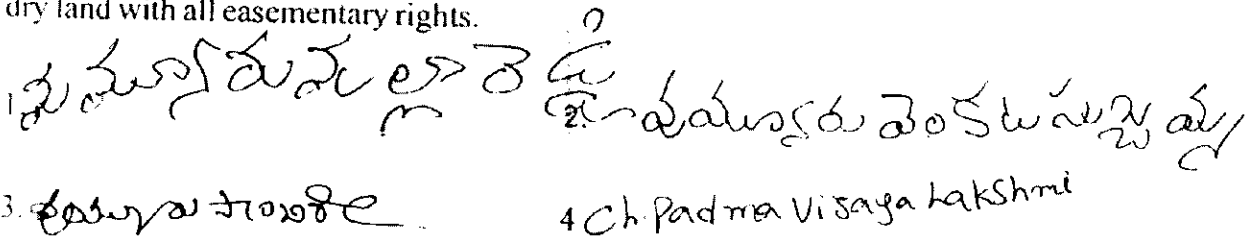 dry land with all easementary rights.
1. వుయ్యూరు నల్లారెడ్డి 2. వుయ్యూరు వెంకటసుబ్బమ్మ
3. 4 Ch. Padma Vijaya Lakshmi